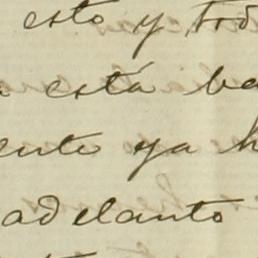 esto y tod
está ba
ente ya h
adelanto